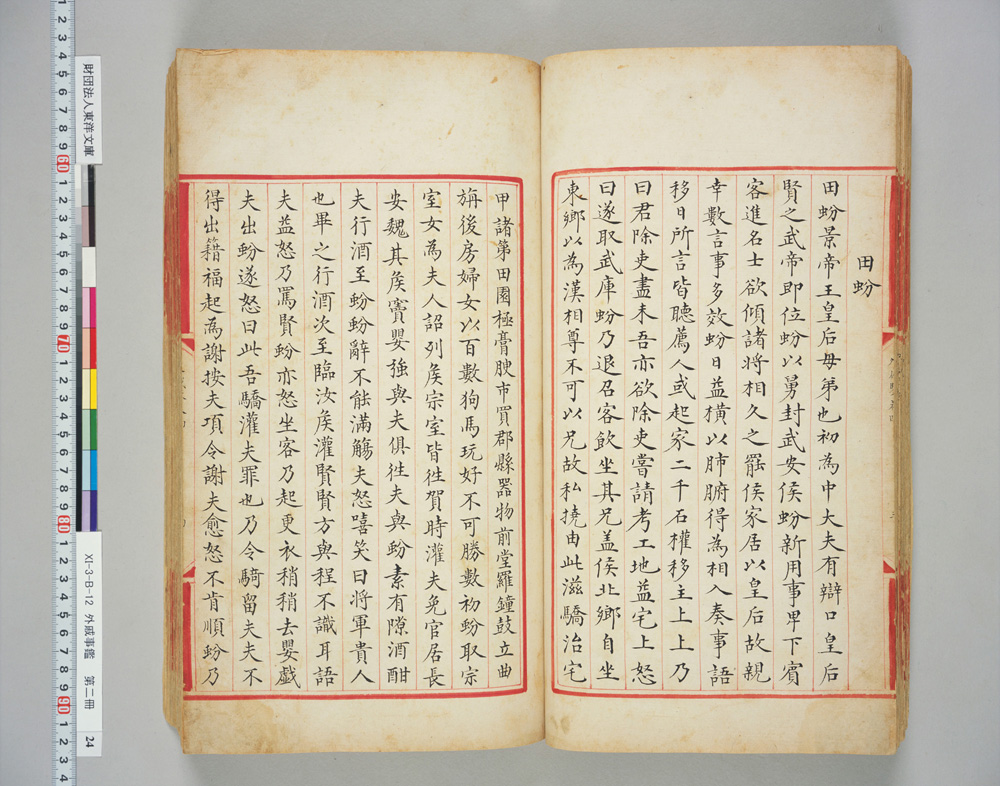 田蚡
田蚡景帝王皇后母弟也初為中大夫有辯口皇后
賢之武帝即位蚡以舅封武安侯蚡新用事卑下賓
客進名士欲傾諸將相久之罷侯家居以皇后故親
幸數言事多效蚡日益橫以肺腑得為相入奏事語
移日所言皆聽薦人或起家二千石權移主上上乃
曰君除吏盡未吾亦欲除吏嘗請考工地益宅上怒
曰遂取武庫蚡乃退召客飲坐其兄盖侯北鄉自坐
東鄉以為漢相尊不可以兄故私撓由此滋驕治宅
甲諸第田園極膏腴市買郡縣器物前堂羅鐘鼓立曲
旃後房婦女以百數狗馬玩好不可勝數初蚡取宗
室女為夫人詔列侯宗室皆徃賀時灌夫免官居長
安魏其侯竇嬰強與夫俱徃夫與蚡素有隙酒酣
夫行酒至蚡蚡辭不能滿觴夫怒嘻笑曰將軍貴人
也畢之行酒次至臨汝侯灌賢賢方與程不識耳語
夫益怒乃罵賢蚡亦怒坐客乃起更衣稍稍去嬰戲
夫出蚡遂怒曰此吾驕灌夫罪也乃令騎留夫夫不
得出籍福起為謝按夫項令謝夫愈怒不肯順蚡乃
財団法人東洋文庫
XI-3-B-12 外戚事鑑 第二冊
24